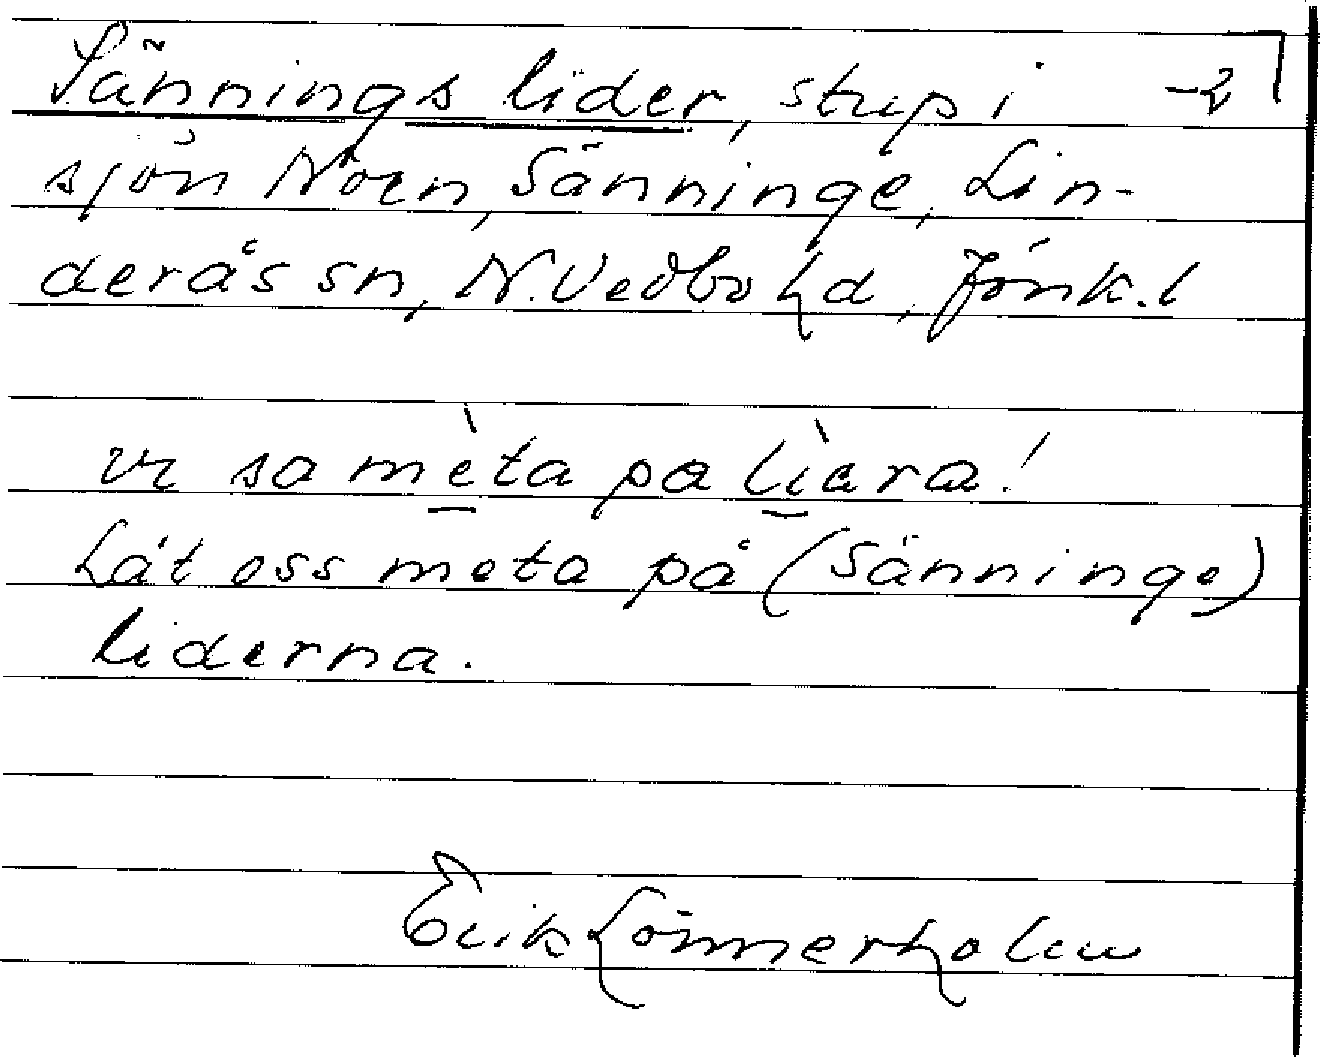 Sännings lider, stup i -2
sjön Nöen, Sänninge, Lin-
derås sn, N. Vedbo hd, Jönk. l
vi sa mèta pa lìera!
Låt oss meta på (Sänninge)
liderna.
Erik Lönnerholm